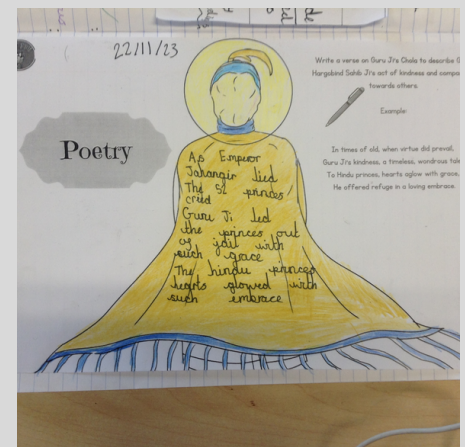 22/11/23
Poetry
Write a verse on Guru Ji's Chola to describe G
Hargobind Sahib Ji's act of kindness and compa
towards others.
Example:
In times of old, when virtue did prevail,
Guru Ji's kindness, a timeless, wondrous tale
To Hindu princes, hearts aglow with grace,
He offered refuge in a loving embrace.
As Emperor
Jahangir lied
The 52 princes
cried
Guru Ji led
the princes out
of jail with
such grace
The hindu princes
hearts glowed with
such embrace